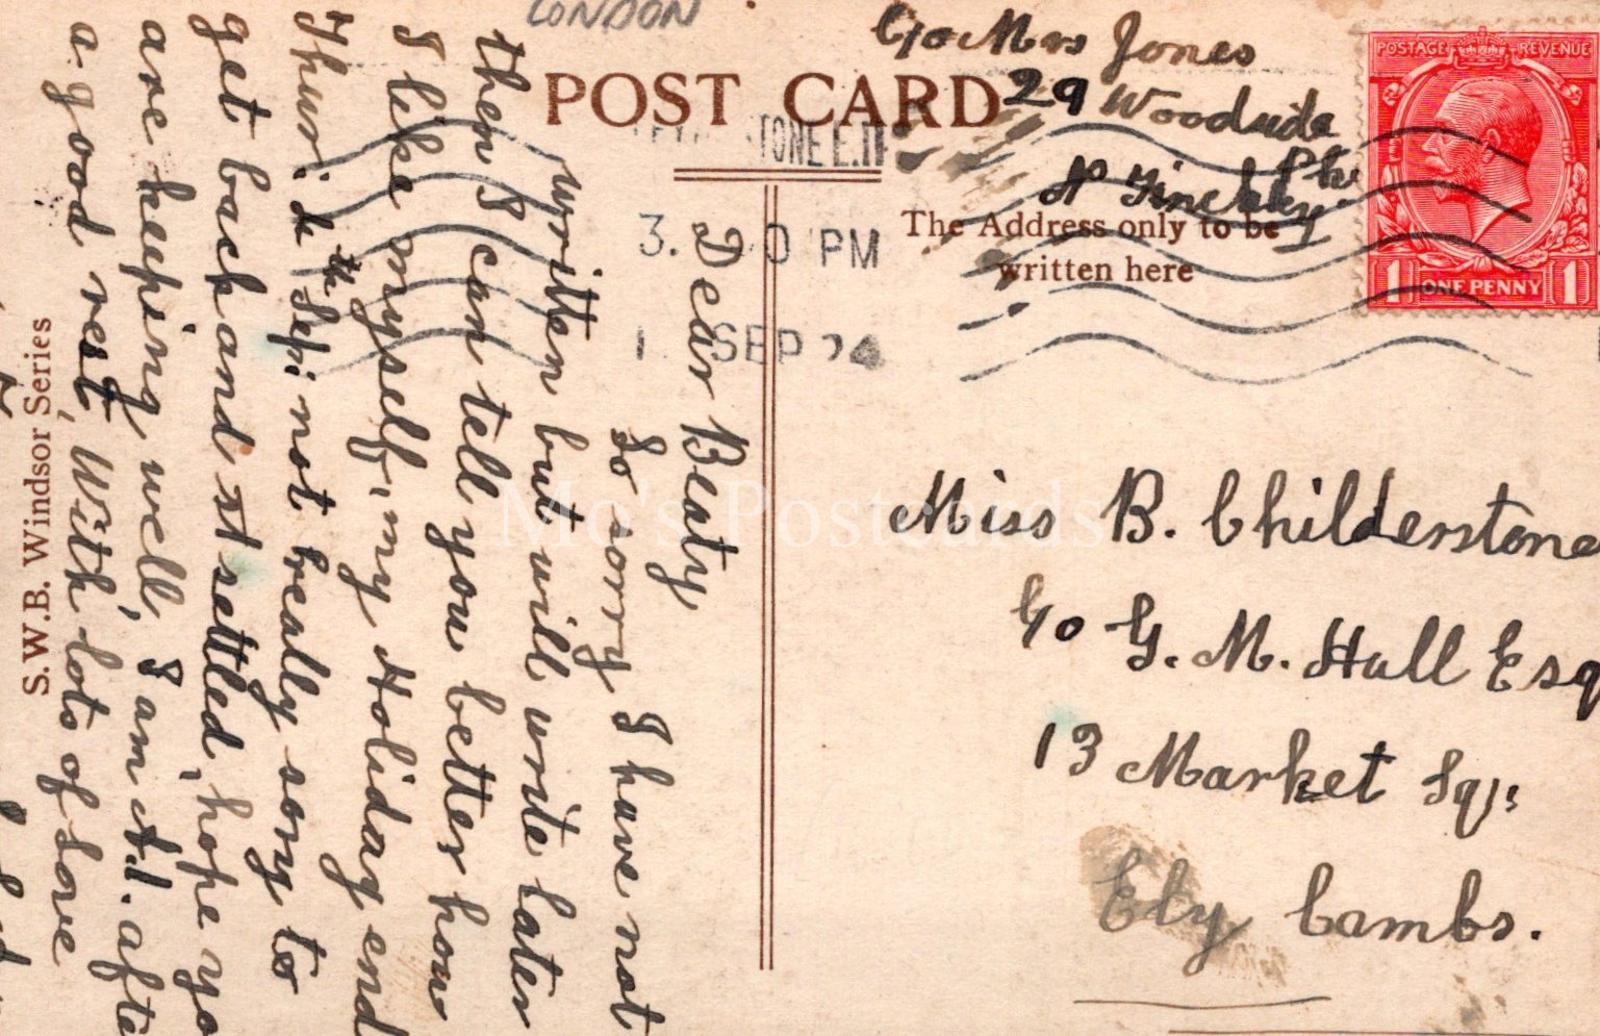 LONDON
POST CARD
C/o Mrs Jones
29 Woodside
N Finchley
The Address only to be
written here
POSTAGE REVENUE
1 ONE PENNY 1
TONE E.11
3. 0 PM
1 SEP 24
Dear Beaty
So sorry I have not
written but will write later
then I can tell you better how
I like myself, my Holiday end
Thurs: th Sep: not really sorry to
get back and st settled, hope yo
are keeping well, I am A.1. afte
a good rest, With lots of love
S.W.B. Windsor Series
Miss B. Childerstone
C/o G. M. Hall Esq
13 Market Sq:
Ely Cambs.
Mo's Postcards